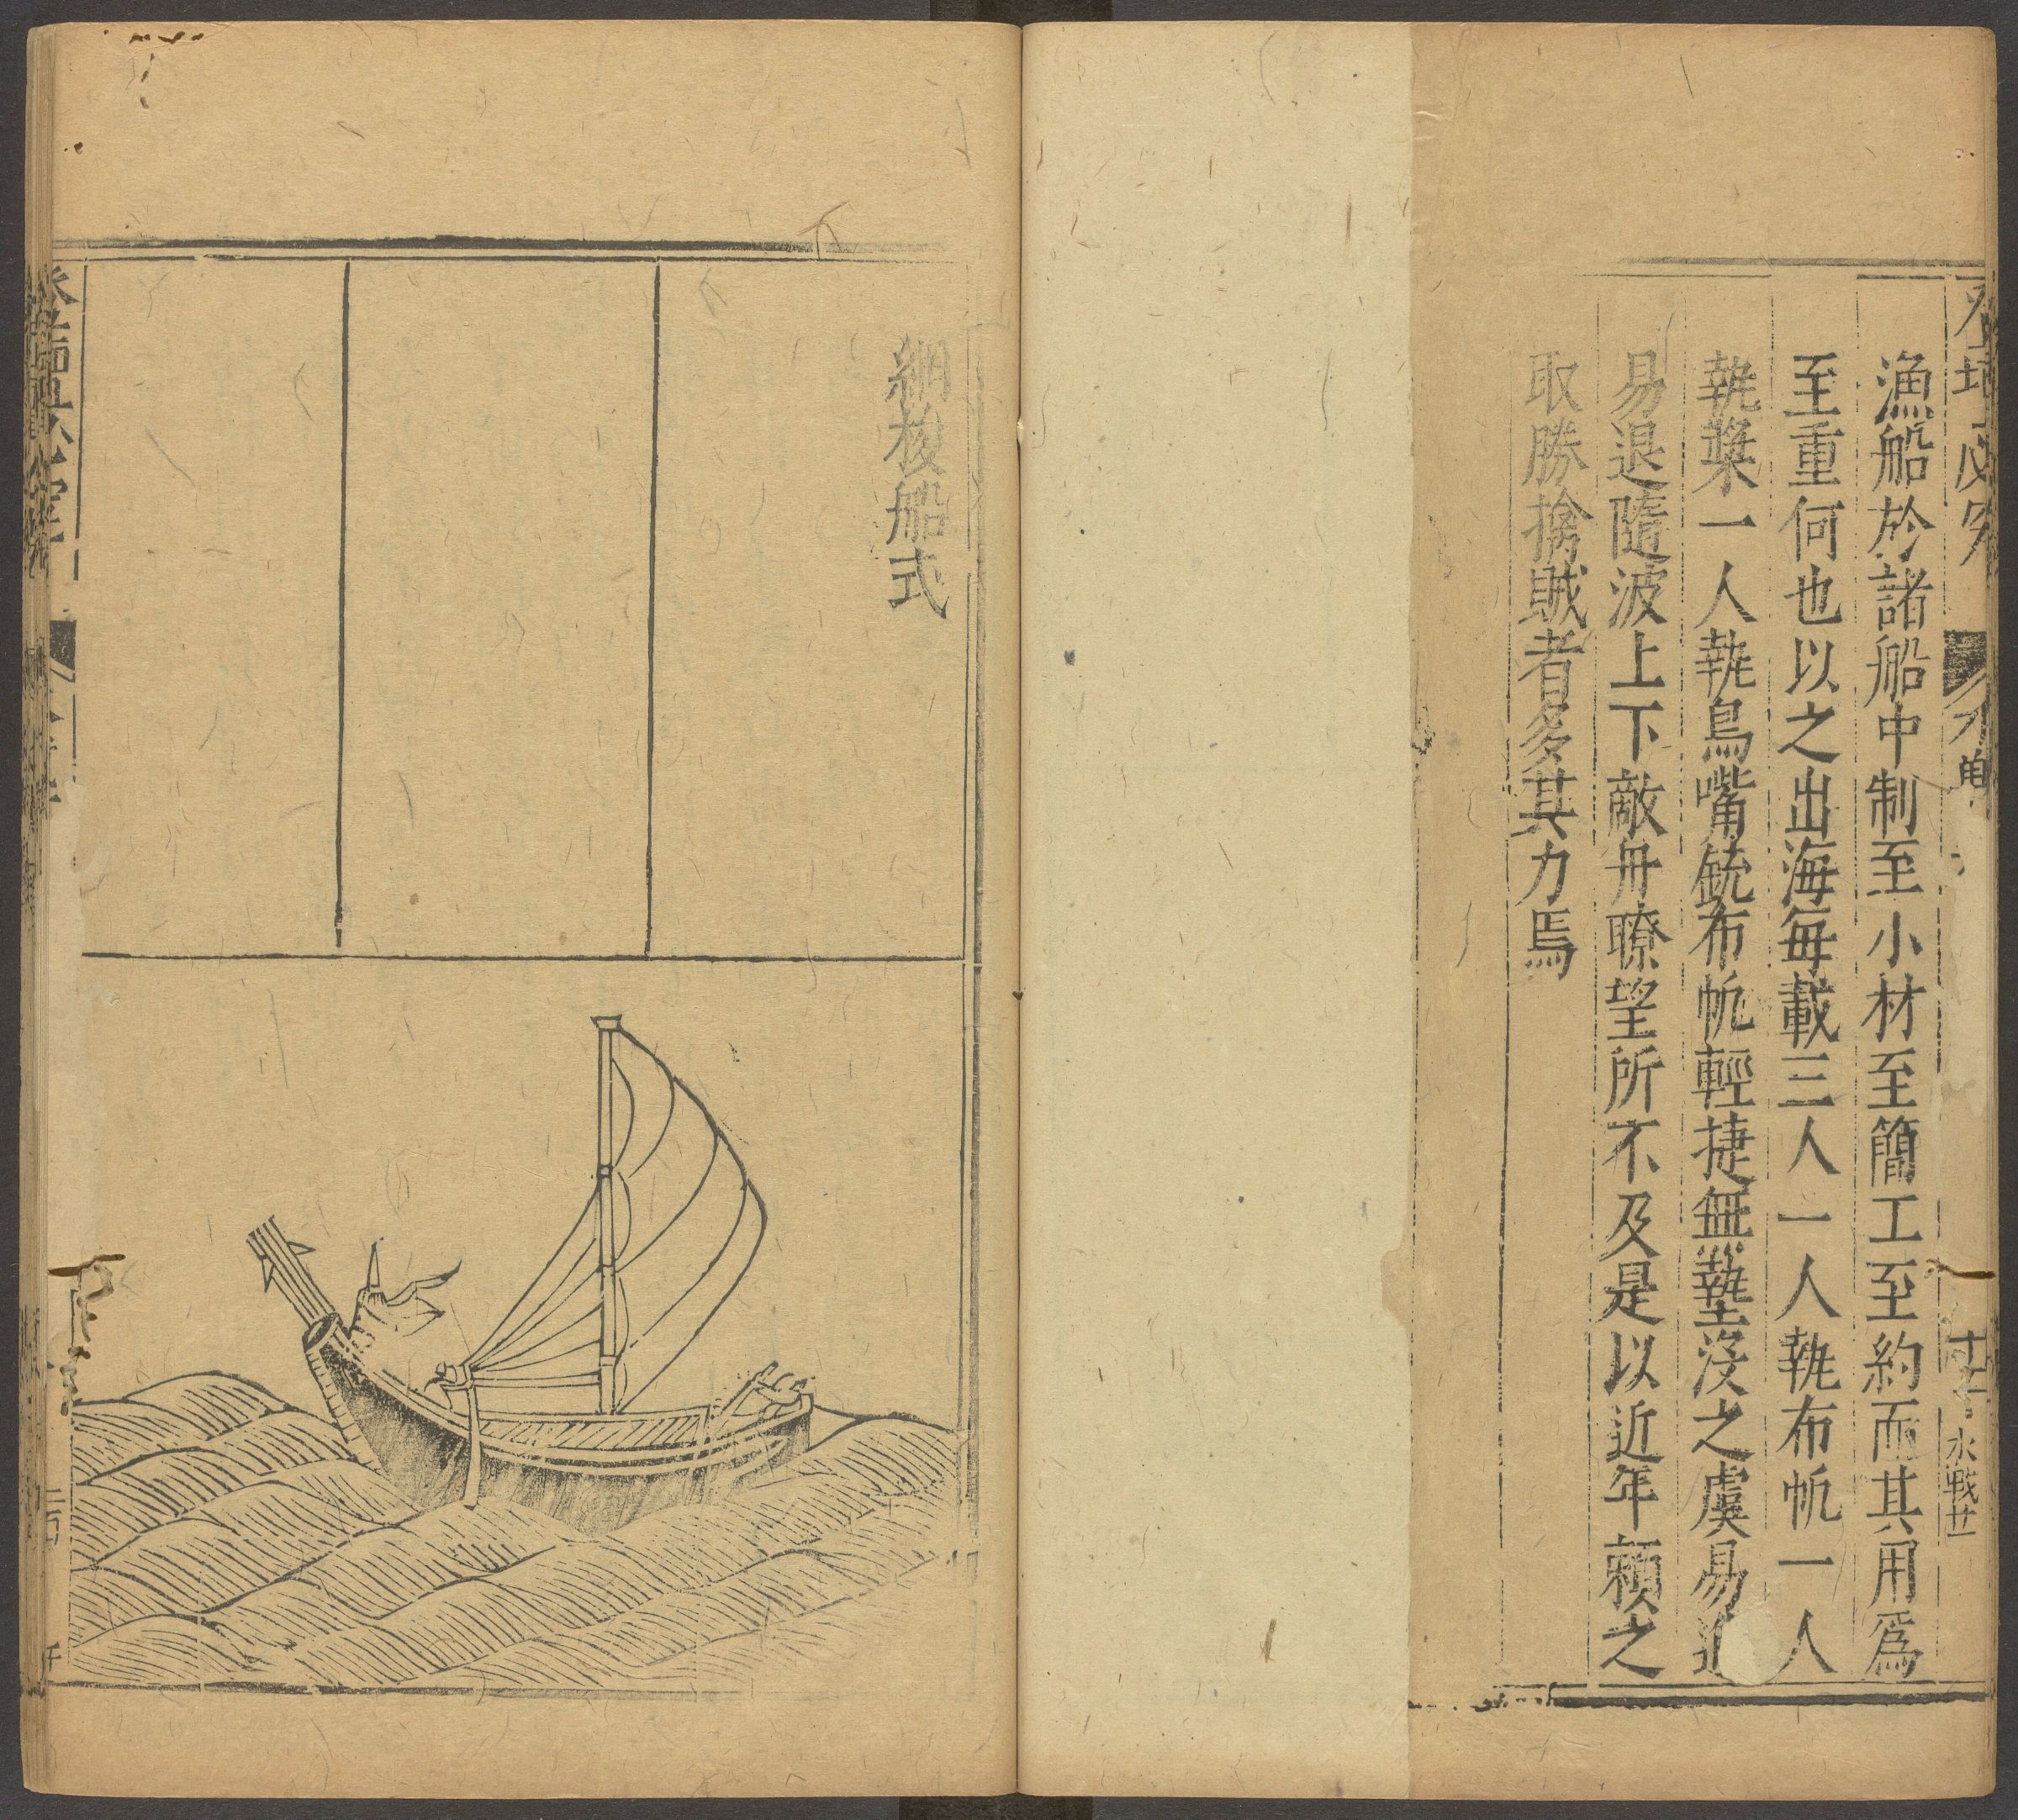 漁船於諸船中制至小材至簡工至約而其用爲
至重何也以之出海每載三人一人執布帆一人
執槳一人執鳥嘴銃布帆輕捷無墊沒之虞易進
易退隨波上下敵舟瞭望所不及是以近年賴之
取勝擒賊者多其力焉
水戰廿一
網梭船式